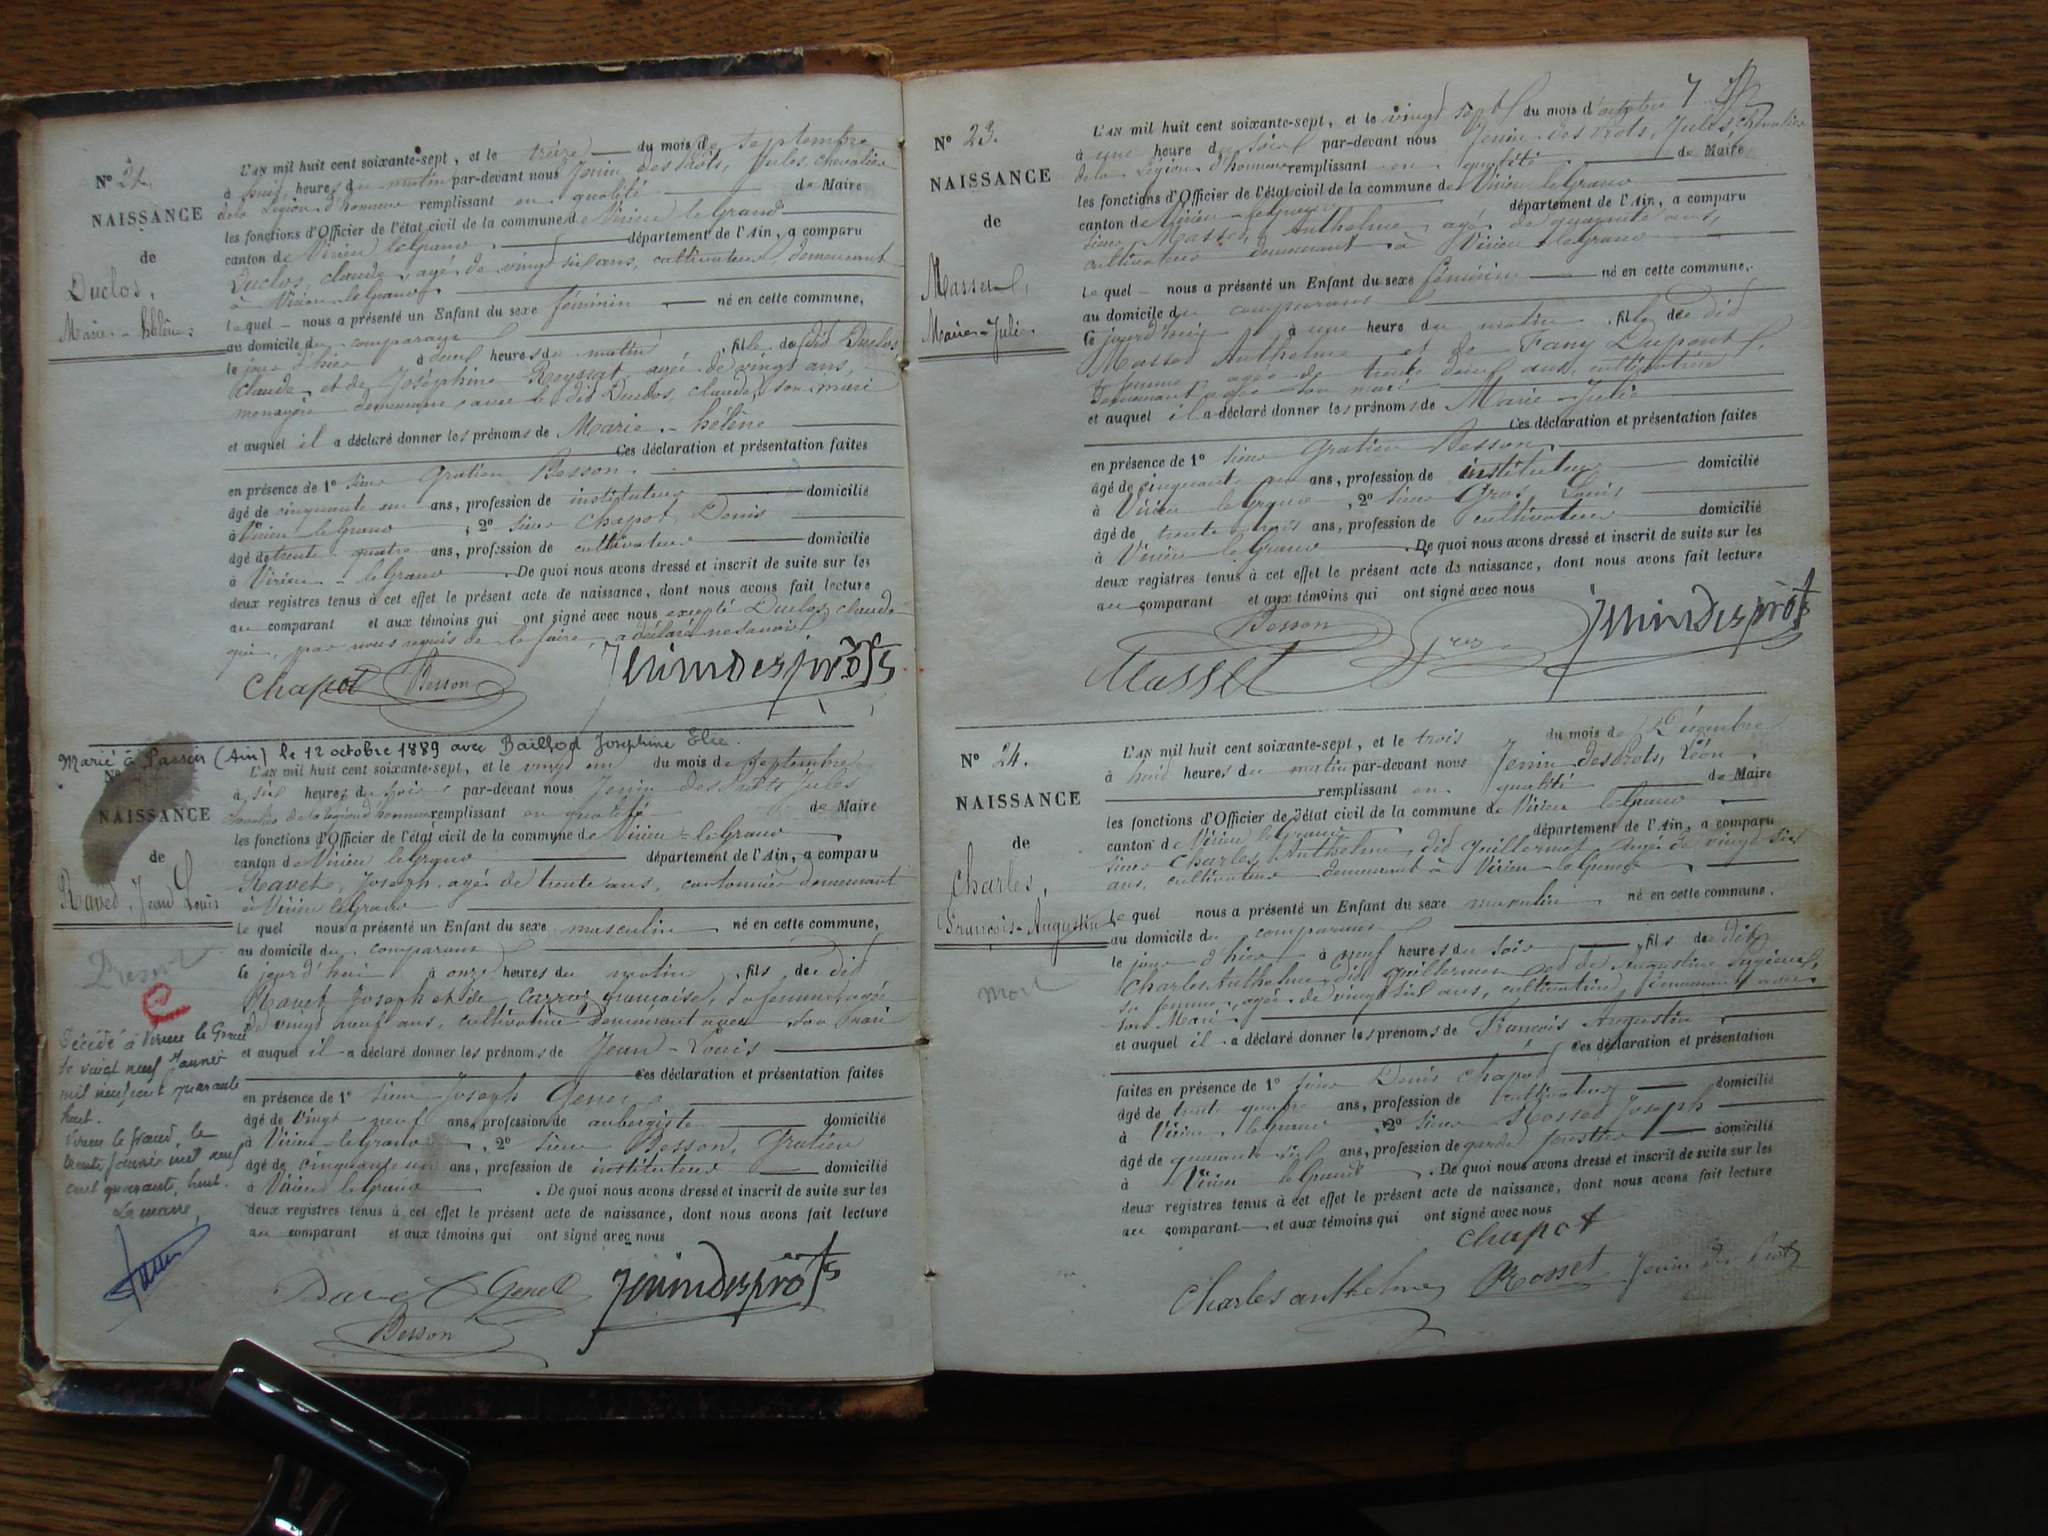 N° 21.
NAISSANCE
de
Duclos,
Marie-hélène
L'AN mil huit cent soixante-sept, et le treize du mois de septembre
à neuf heures du matin par-devant nous Jenin des prots, Jules, chevalier
de la Légion d'honneur remplissant en qualité de Maire
les fonctions d'Officier de l'état civil de la commune de Virieu le Grand
canton de Virieu le Grand département de l'Ain, a comparu
Duclos, claude, agé de vingt six ans, cultivateur demeurant
à Virieu-le-Grand
lequel nous a présenté un Enfant du sexe féminin né en cette commune,
au domicile du comparant
le jour d'hier à heures du matin, fille de dit Duclos
Claude et de Joséphine Reyssat, agée de vingt ans,
menagère demeurant avec le dit Duclos, claude, son mari
et auquel il a déclaré donner les prénoms de Marie-hélène
Ces déclaration et présentation faites
en présence de 1° sieur Gratien Besson
âgé de cinquante un ans, profession de instituteur domicilié
à Virieu-le-Grand, 2° sieur Chapot, Denis
âgé de trente quatre ans, profession de cultivateur domicilié
à Virieu-le-Grand. De quoi nous avons dressé et inscrit de suite sur les
deux registres tenus à cet effet le présent acte de naissance, dont nous avons fait lecture
au comparant et aux témoins qui ont signé avec nous excepté Duclos, claude
qui, par nous requis de le faire, a déclaré ne savoir
Chapot Besson Jenindesprots
Marié à (Ain) le 12 octobre 1889 avec Josephine
N°
NAISSANCE
de
Ravet, Jean Louis
L'AN mil huit cent soixante-sept, et le vingt un du mois de septembre
à six heures du soir par-devant nous Jenin des Prots Jules
chevalier de la légion d'honneur remplissant en qualité de Maire
les fonctions d'Officier de l'état civil de la commune de Virieu-le-Grand
canton de Virieu le Grand département de l'Ain, a comparu
Ravet, Joseph, agé de trente ans, cantonnier demeurant
à Virieu le Grand
lequel nous a présenté un Enfant du sexe masculin né en cette commune,
au domicile du comparant
le jourd'hui à onze heures du matin, fils de dit
Ravet Joseph et de Carroz françoise, sa femme, agée
de vingt neuf ans, cultivatrice demeurant avec son mari
et auquel il a déclaré donner les prénoms de Jean-Louis
Ces déclaration et présentation faites
en présence de 1° sieur Joseph Genet
âgé de vingt neuf ans, profession de aubergiste domicilié
à Virieu-le-Grand, 2° sieur Besson, Gratien
âgé de cinquante un ans, profession de instituteur domicilié
à Virieu le Grand. De quoi nous avons dressé et inscrit de suite sur les
deux registres tenus à cet effet le présent acte de naissance, dont nous avons fait lecture
au comparant et aux témoins qui ont signé avec nous
Décédé à Virieu le Grand
le vingt neuf Janvier
mil neuf cent quarante
huit.
Virieu le grand, le
trente janvier mil neuf
cent quarante, huit.
Le maire,
Ravet Genet Jenindesprots
Besson
7
N° 23.
NAISSANCE
de
Masset,
Marie-Julie
L'AN mil huit cent soixante-sept, et le vingt sept du mois d'octobre
à une heure du soir par-devant nous Jenin des Prots, Jules, chevalier
de la Légion d'honneur remplissant en qualité de Maire
les fonctions d'Officier de l'état civil de la commune de Virieu le Grand
canton de Virieu-le-Grand département de l'Ain, a comparu
sieur Masset, Anthelme agé de quarante ans,
cultivateur demeurant à Virieu-le-Grand
lequel nous a présenté un Enfant du sexe féminin né en cette commune,
au domicile du comparant
le jourd'hui à une heure du matin, fille de dit
Masset Anthelme et de Fany Dupont,
sa femme, agée de trente deux ans, cultivatrice
demeurant avec son mari
et auquel il a déclaré donner les prénoms de Marie-Julie
Ces déclaration et présentation faites
en présence de 1° sieur Gratien Besson
âgé de cinquante un ans, profession de instituteur domicilié
à Virieu le Grand, 2° sieur Gros Louis
âgé de trente trois ans, profession de cultivateur domicilié
à Virieu le Grand. De quoi nous avons dressé et inscrit de suite sur les
deux registres tenus à cet effet le présent acte de naissance, dont nous avons fait lecture
au comparant et aux témoins qui ont signé avec nous
Besson Gros Jenindesprots
Masset
N° 24.
NAISSANCE
de
Charles,
François-Augustin
mort
L'AN mil huit cent soixante-sept, et le trois du mois de Décembre
à huit heures du matin par-devant nous Jenin desprots, Léon,
remplissant en qualité de Maire
les fonctions d'Officier de l'état civil de la commune de Virieu le Grand
canton de Virieu le Grand département de l'Ain, a comparu
sieur Charles Anthelme, dit guillermet, agé de vingt six
ans, cultivateur demeurant à Virieu-le-Grand
Lequel nous a présenté un Enfant du sexe masculin né en cette commune.
au domicile du comparant
le jour d'hier à neuf heures du soir, fils de dit
Charles Anthelme dit guillermet et de Augustine
sa femme, agée de vingt six ans, cultivatrice, demeurant avec
son Mari
et auquel il a déclaré donner les prénoms de François Augustin
Ces déclaration et présentation
faites en présence de 1° sieur Denis Chapot
âgé de trente quatre ans, profession de cultivateur domicilié
à Virieu le grand, 2° sieur Rosset Joseph
âgé de quarante six ans, profession de garde forestier domicilié
à Virieu le Grand. De quoi nous avons dressé et inscrit de suite sur les
deux registres tenus à cet effet le présent acte de naissance, dont nous avons fait lecture
au comparant et aux témoins qui ont signé avec nous
Chapot
Charles anthelme Rosset Jenin des Prots